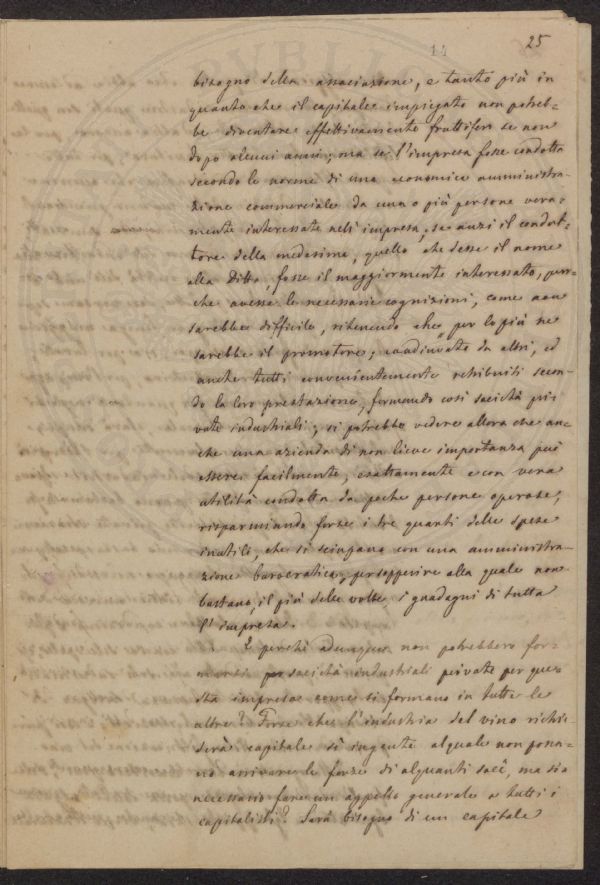 25
11
bisogno della associazione, e tanto più in
quanto che il capitale impiegato non potreb=
be diventare effettivamente fruttifero se non
dopo alcuni anni; ma se l'impresa fosse condotta
secondo le norme di una economica amministra=
zione commerciale da una o più persone vera=
mente interessate nell'impresa, se anzi il condut=
tore della medesima, quello che desse il nome
alla Ditta, fosse il maggiormente interessato, pur=
che avesse le necessarie cognizioni, come non
sarebbe difficile, ritenendo che per lo più ne
sarebbe il promotore; coadiuvato da altri, ed
anche tutti convenientemente retribuiti secon=
do la loro prestazione, formando così società pri=
vate industriali; si potrebbe vedere allora che an=
che una azienda di non lieve importanza può
essere facilmente, esattamente e con vera
utilità condotta da poche persone operose,
risparmiando forse i tre quarti delle spese
inutili, che si sciupano con una amministra=
zione burocratica, per sopperire alla quale non
bastano, il più delle volte, i guadagni di tutta
l'impresa.
E perchè adunque non potrebbero for=
marsi società industriali private per que=
sta impresa come si formano in tutte le
altre? Forse che l'industria del vino richie=
derà capitale sì ingente al quale non possa=
no arrivare le forze di alquanti soci, ma sia
necessario fare un appello generale a tutti i
capitalisti? Sarà bisogno di un capitale